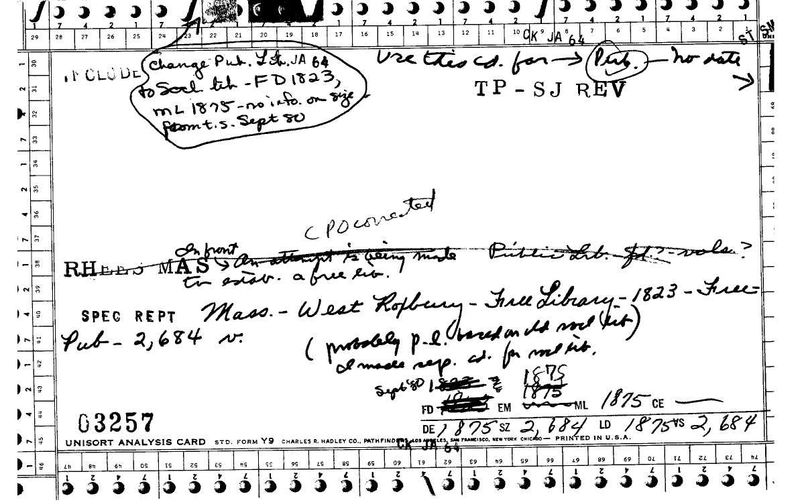 29 28 27 26 25 24 23 22 21 20 19 18 17 16 15 14 13 12 11 10 9 8 7 6 5 4 3 2 1
CK JA 64
ST
INCLUDE
Change Pub. Lib. JA 64
to Socl lib - FD 1823,
ML 1875 - no info. on size
from t.s. Sept 80
Use this cd. for → Pub. — no date
TP - SJ REV
CPO corrected
In front
RHEES MAS → An attempt is being made Public Lib. fd.? vols.?
to estab. a free lib.
SPEC REPT Mass. - West Roxbury - Free Library - 1823 - Free -
Pub - 2,684 v.
(probably p.l. based on old socl lib)
I made sep. cd. for socl lib.
Sept 80 1875
1875
FD EM ML 1875 CE —
03257
DE 1875 SZ 2,684 LD 1875 VS 2,684
UNISORT ANALYSIS CARD STD. FORM Y9 CHARLES R. HADLEY CO., PATHFINDERS LOS ANGELES, SAN FRANCISCO, NEW YORK CHICAGO — PRINTED IN U.S.A.
CK JA 64